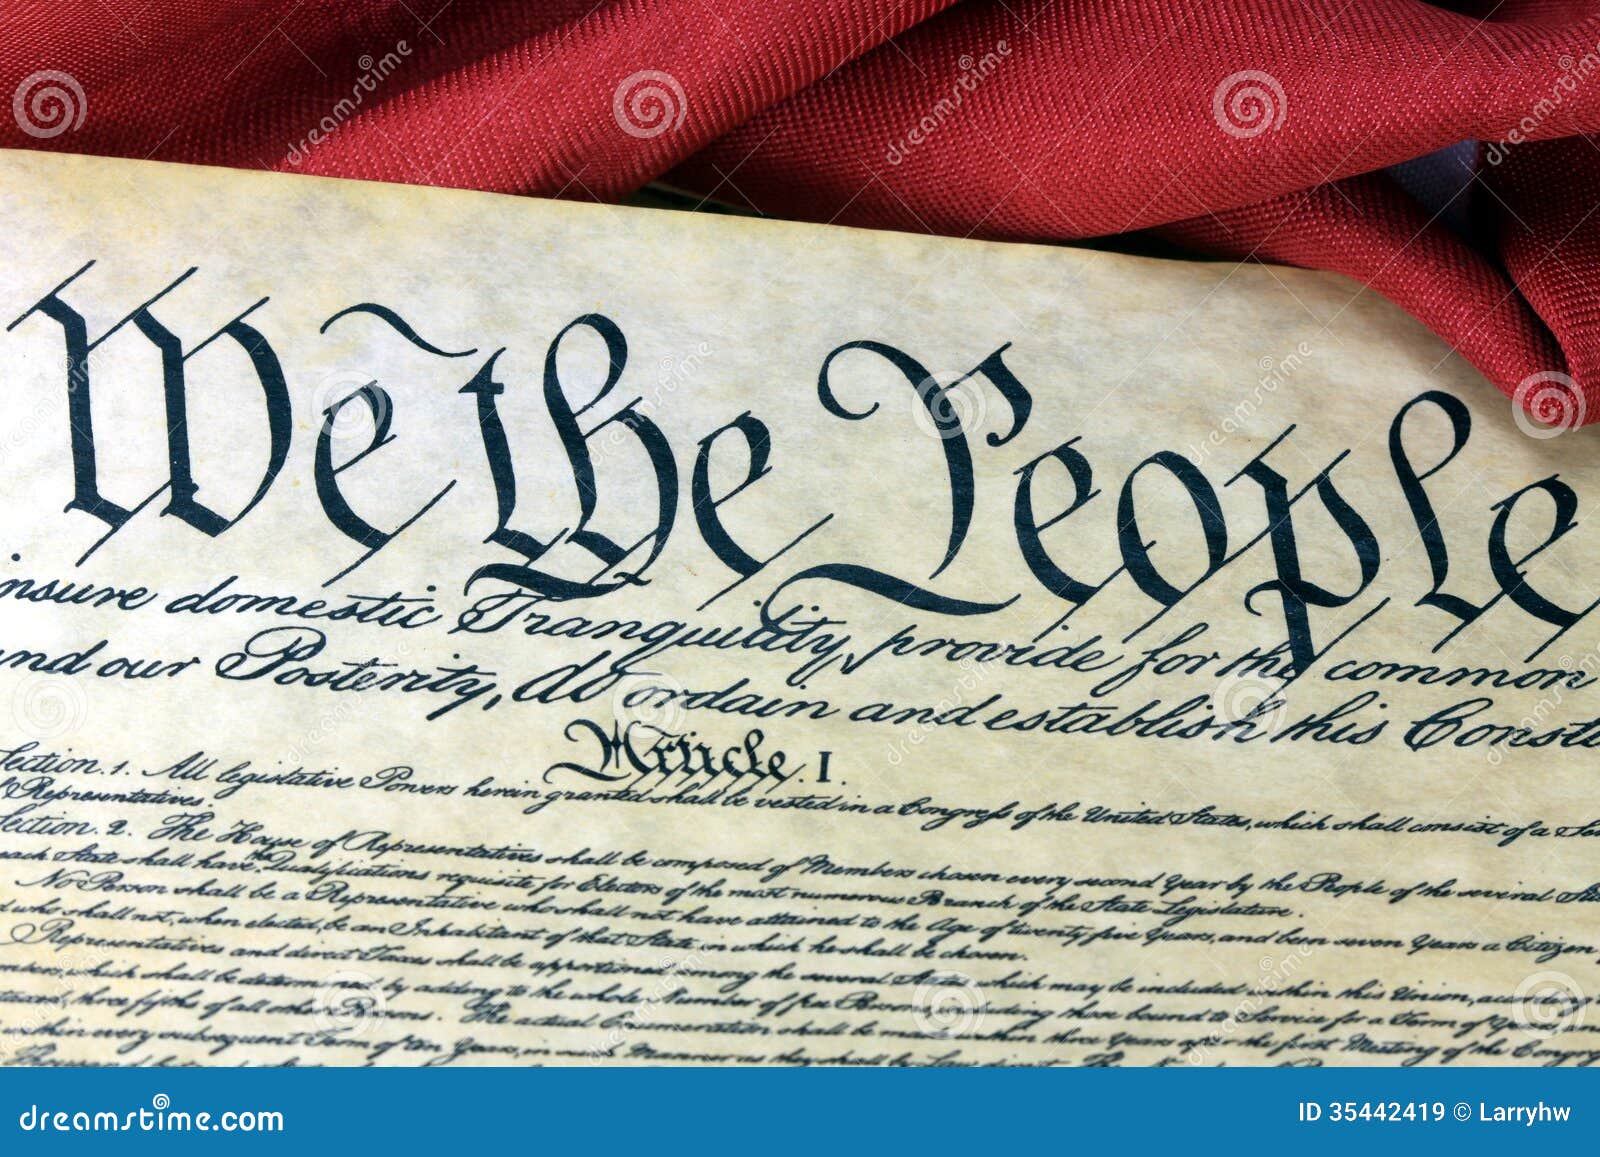 We the People
nsure domestic Tranquility, provide for the common
nd our Posterity, do ordain and establish this Constt
Article. I.
Section. 1. All legislative Powers herein granted shall be vested in a Congress of the United States, which shall consist of a Se
Representatives.
Section. 2. The House of Representatives shall be composed of Members chosen every second Year by the People of the several Sta
each State shall have the Qualifications requisite for Electors of the most numerous Branch of the State Legislature.
No Person shall be a Representative who shall not have attained to the Age of twenty five Years, and been seven Years a Citizen
d who shall not, when elected, be an Inhabitant of that State in which he shall be chosen.
Representatives and direct Taxes shall be apportioned among the several States which may be included within this Union, according
mbers, which shall be determined by adding to the whole Number of free Persons, including those bound to Service for a Term of Years, and
taxed, three fifths of all other Persons. The actual Enumeration shall be made within three Years after the first Meeting of the Congre
within every subsequent Term of ten Years, in such Manner as they shall by Law direct. The
dreamstime.com
ID 35442419 © Larryhw